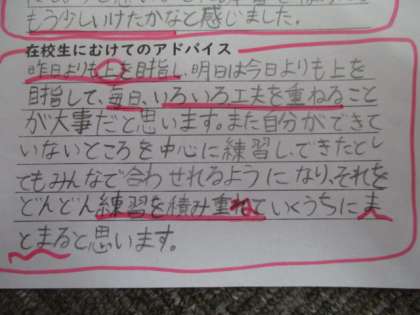 もう少しいけたかなと感じました。
在校生にむけてのアドバイス
昨日よりも上を目指し、明日は今日よりも上を
目指して、毎日、いろいろ工夫を重ねること
が大事だと思います。また自分ができて
いないところを中心に練習し、できたとし
てもみんなで合わせれるようになり、それを
どんどん練習を積み重ねていくうちにま
とまると思います。